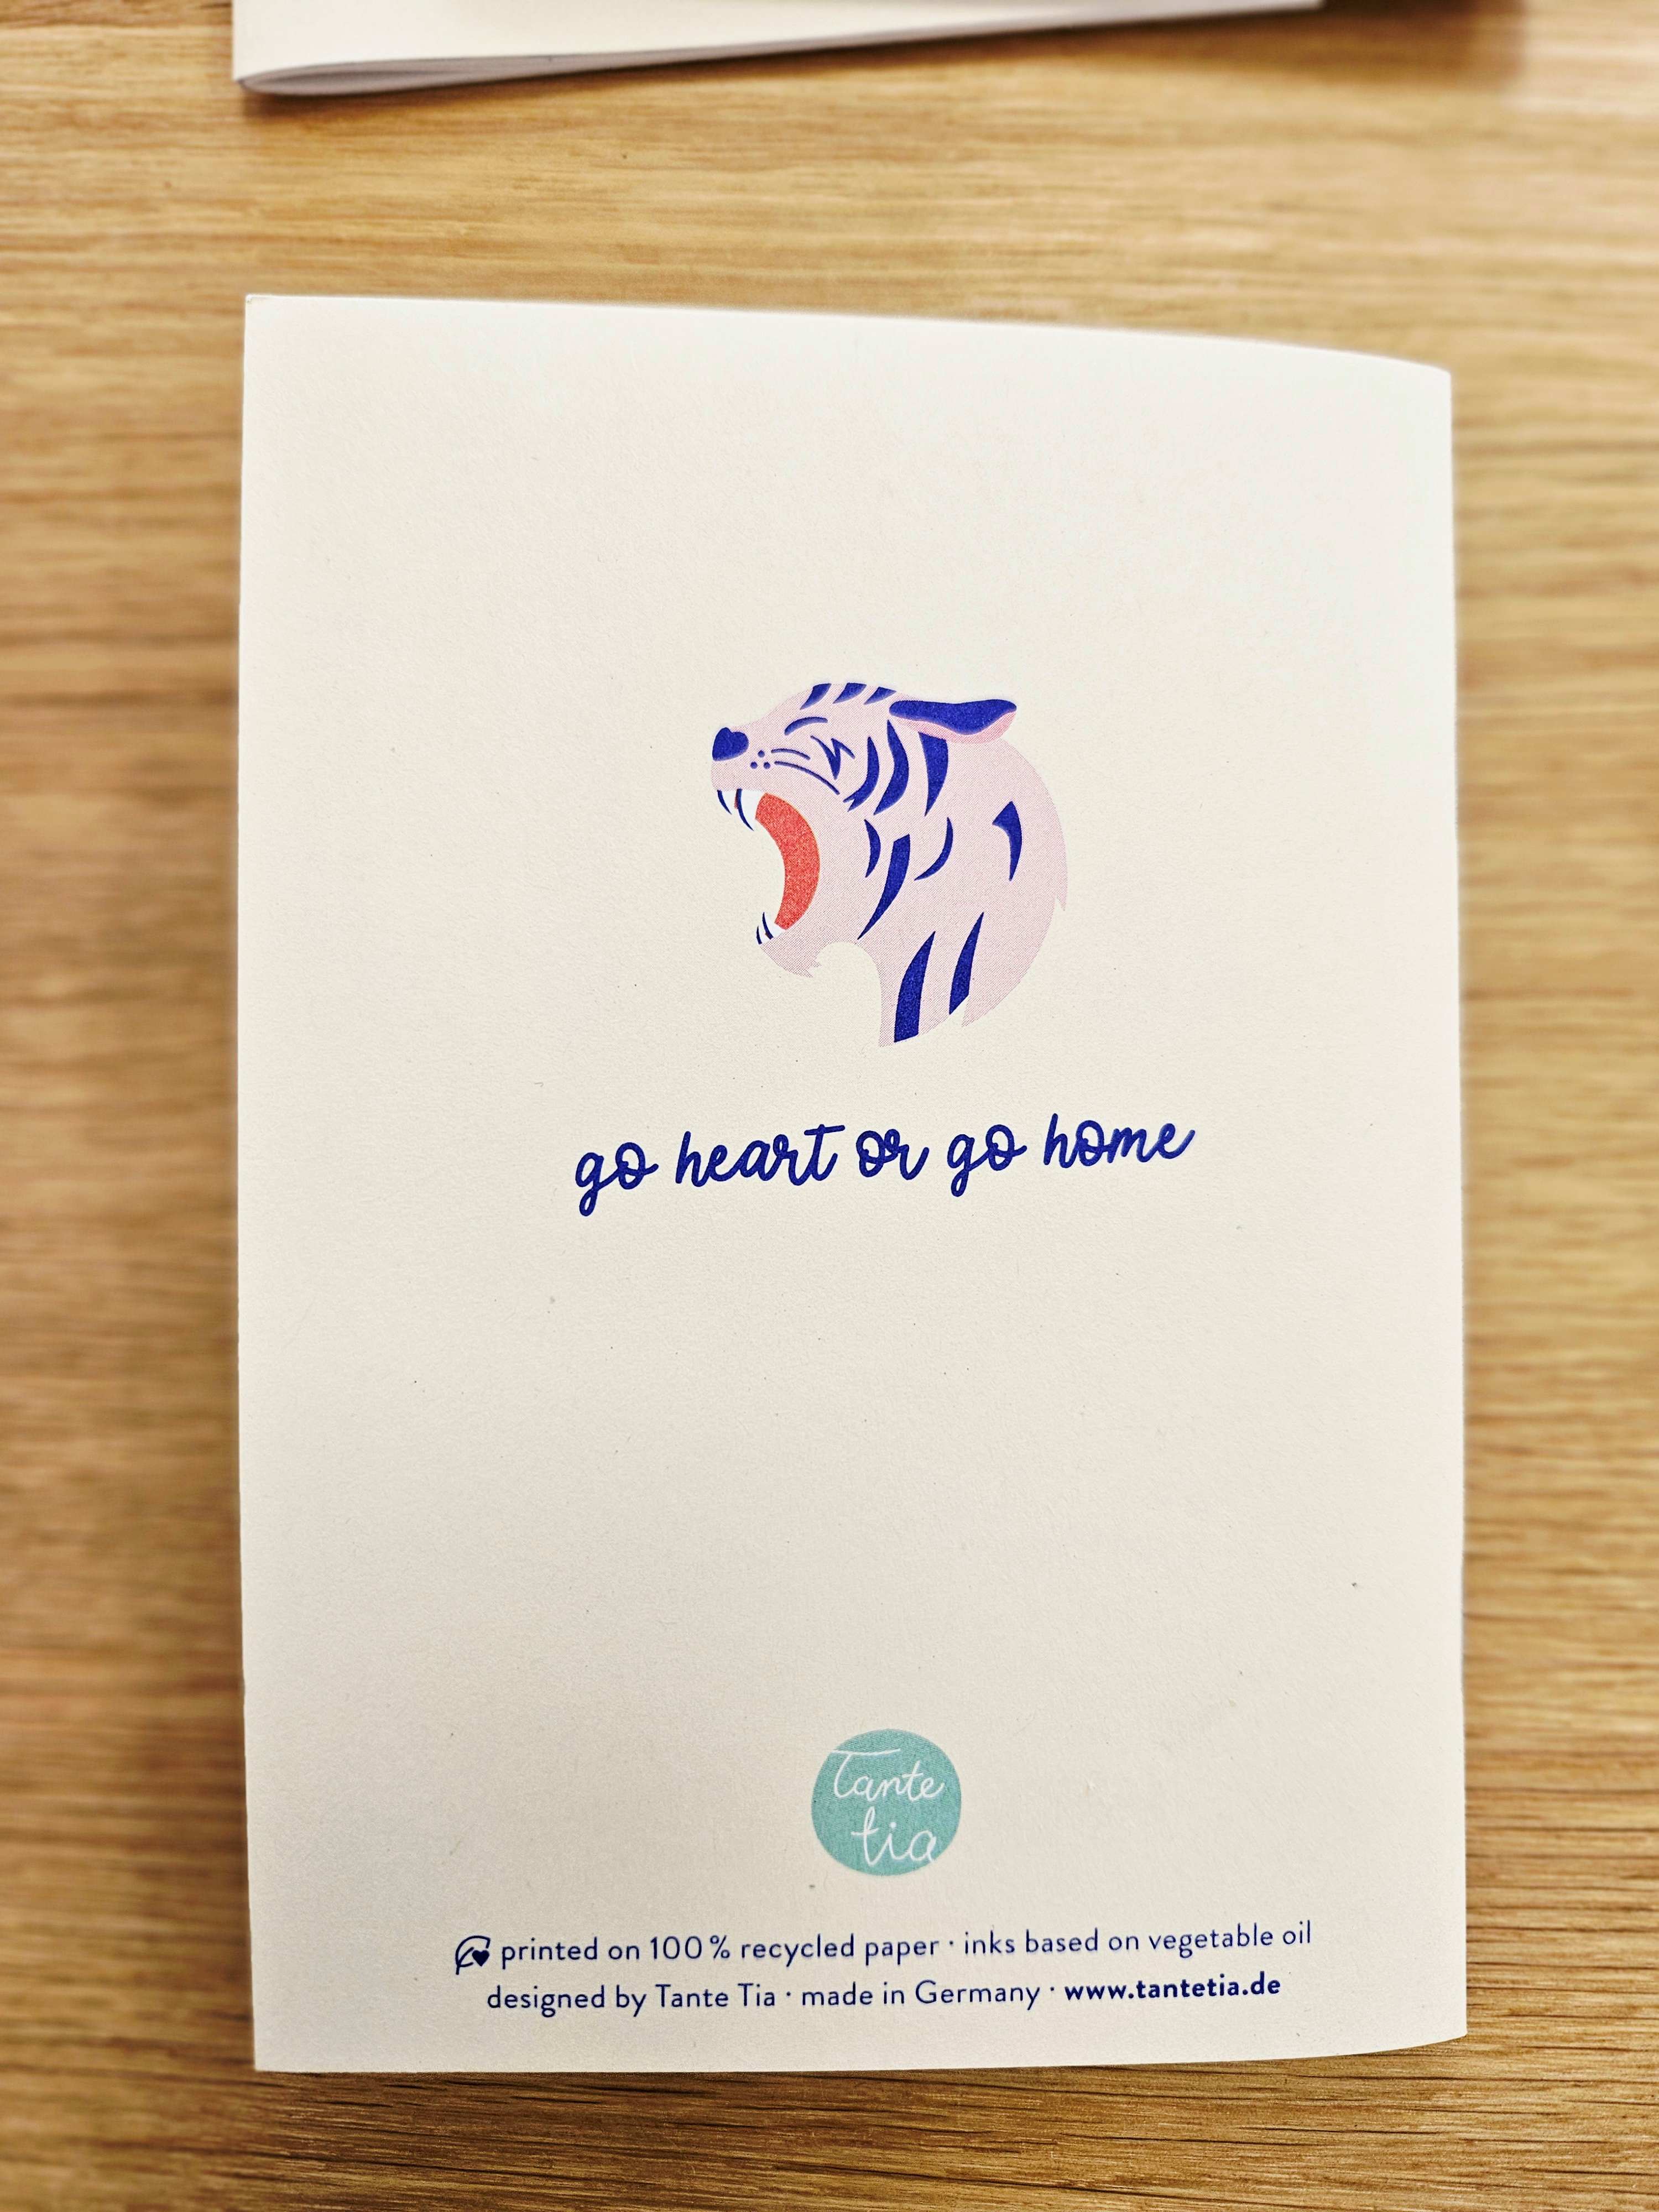 go heart or go home
Tante
tia
printed on 100% recycled paper · inks based on vegetable oil
designed by Tante Tia · made in Germany · www.tantetia.de